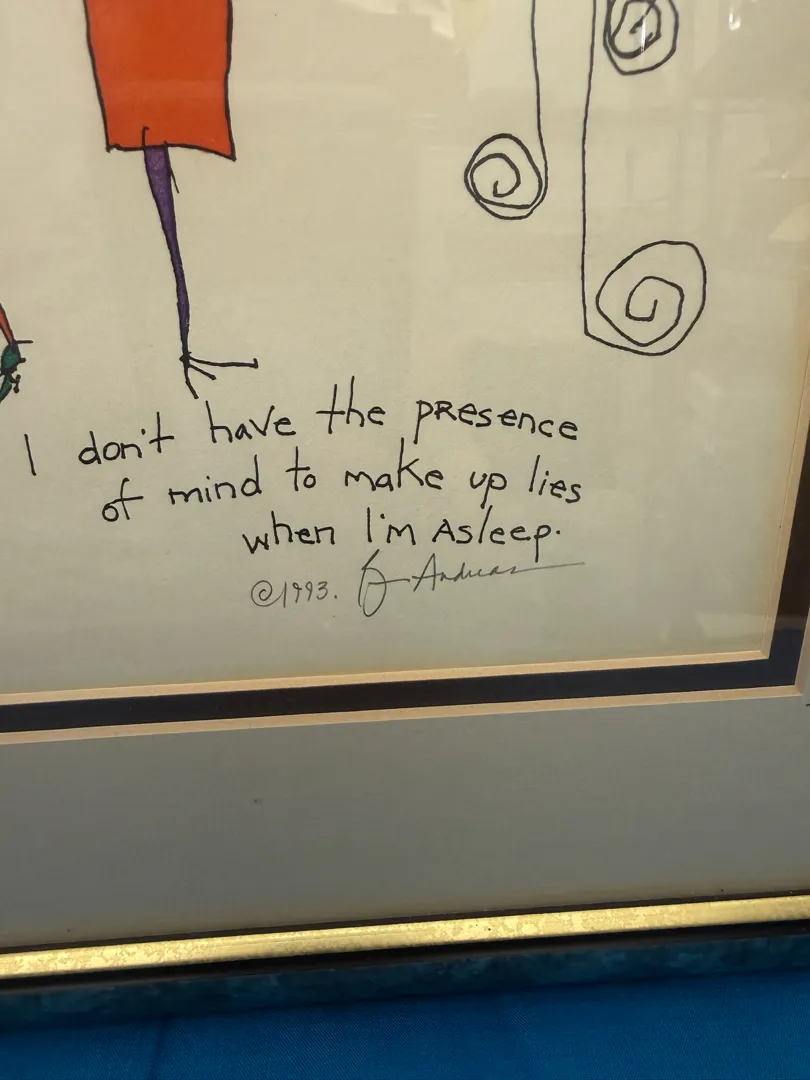 I don't have the presence
of mind to make up lies
when I'm Asleep.
©1993. Andreas